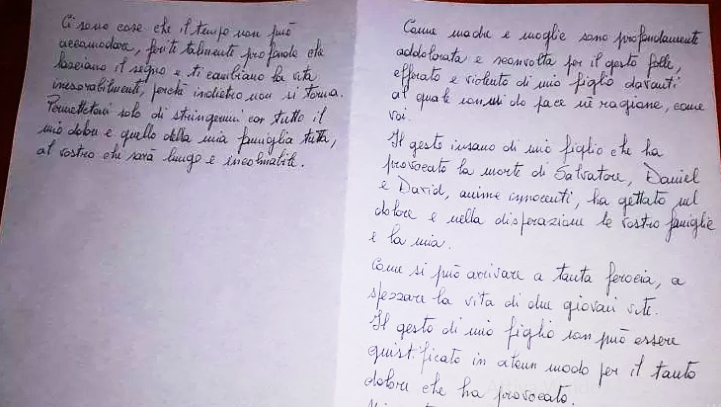 Ci sono cose che il tempo non può
accomodare, ferite talmente profonde che
lasciano il segno e ti cambiano la vita
inesorabilmente, perché indietro non si torna.
Permettetemi solo di stringermi con tutto il
mio dolore e quello della mia famiglia tutta,
al vostro che sarà lungo e incolmabile.
Come madre e moglie sono profondamente
addolorata e sconvolta per il gesto folle,
efferato e violento di mio figlio davanti
al quale non mi do pace né ragione, come
voi.
Il gesto insano di mio figlio che ha
provocato la morte di Salvatore, Daniel
e David, anime innocenti, ha gettato nel
dolore e nella disperazione le vostre famiglie
e la mia.
Come si può arrivare a tanta ferocia, a
spezzare la vita di due giovani vite.
Il gesto di mio figlio non può essere
giustificato in alcun modo per il tanto
dolore che ha provocato.